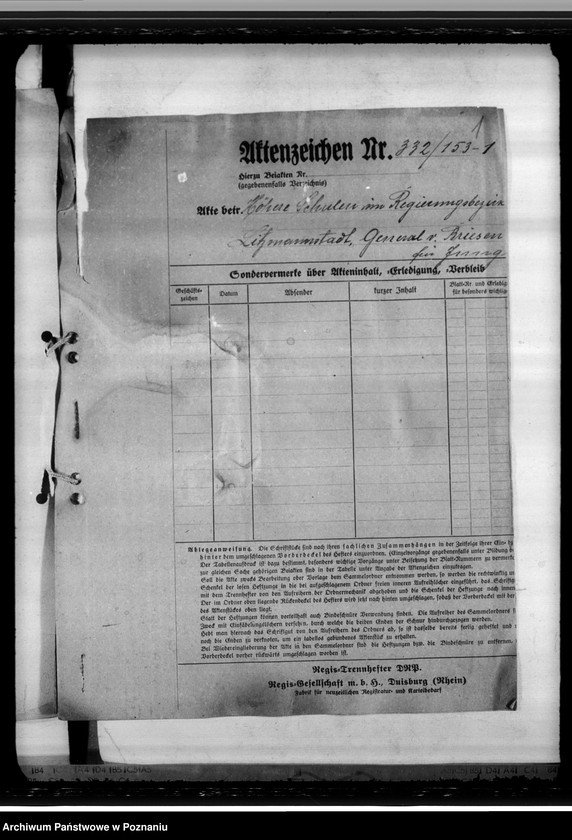 1
Aktenzeichen Nr. 332/153-1
Hierzu Beiakten Nr.
(gegebenenfalls Verzeichnis)
Akte betr. Höhere Schulen im Regierungsbezirk
Litzmannstadt, General v. Briesen
für Jung.
Sondervermerke über Akteninhalt, Erledigung, Verbleib
Geschäfts-
zeichen
Datum
Absender
kurzer Inhalt
Blatt-Nr. und Erledig
für besonders wichtige
Ablegeanweisung. Die Schriftstücke sind nach ihren sachlichen Zusammenhängen in der Zeitfolge ihrer
hinter dem umgeschlagenen Vorderdeckel des Hefters einzuordnen. (Einzelvorgänge gegebenenfalls unter Bildung
Der Tabellenaufdruck ist dazu bestimmt, besonders wichtige Vorgänge unter Beisetzung der Blatt-Nummern zu vermerken
zur gleichen Sache gehörigen Beiakten sind in der Tabelle unter Angabe der Aktenzeichen einzutragen.
Soll die Akte zwecks Bearbeitung oder Vorlage dem Sammelordner entnommen werden, so werden die rechtwinklig
Schenkel der losen Heftzunge in die bei aufgeschlagenem Ordner freien inneren Aufreihlöcher eingeführt, das Schriftgut
mit dem Trennhefter von den Aufreihern der Ordnermechanik abgehoben und die Schenkel der Heftzunge nach innen
Der im Ordner oben liegende Rückendeckel des Hefters wird jetzt nach hinten umgeschlagen, sodaß der Vorderdeckel
des Aktenstückes oben liegt.
Statt der Heftzungen können vorteilhaft auch Bindeschnüre Verwendung finden. Die Aufreiher des Sammelordners
Zweck mit Einfädelungslöchern versehen, durch welche die beiden Enden der Schnur hindurchgezogen werden.
Hebt man hiernach das Schriftgut von den Aufreihern des Ordners ab, so ist dasselbe bereits fertig geheftet und
noch die Enden zu verknoten, um ein tadellos gebundenes Aktenstück zu erhalten.
Bei Wiedereingliederung der Akte in den Sammelordner sind die Heftzungen bzw. die Bindeschnüre zu entfernen,
Vorderdeckel vorher rückwärts umgeschlagen worden ist.
Regis-Trennhefter DRP.
Regis-Gesellschaft m. b. H., Duisburg (Rhein)
Fabrik für neuzeitlichen Registratur- und Karteibedarf
Archiwum Państwowe w Poznaniu